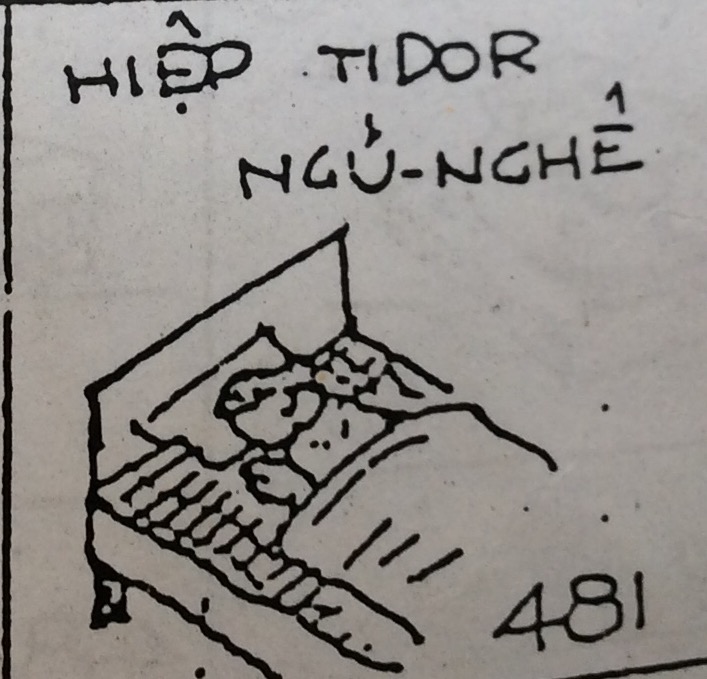 HIỆP TIDOR
NGỦ-NGHẾ
481